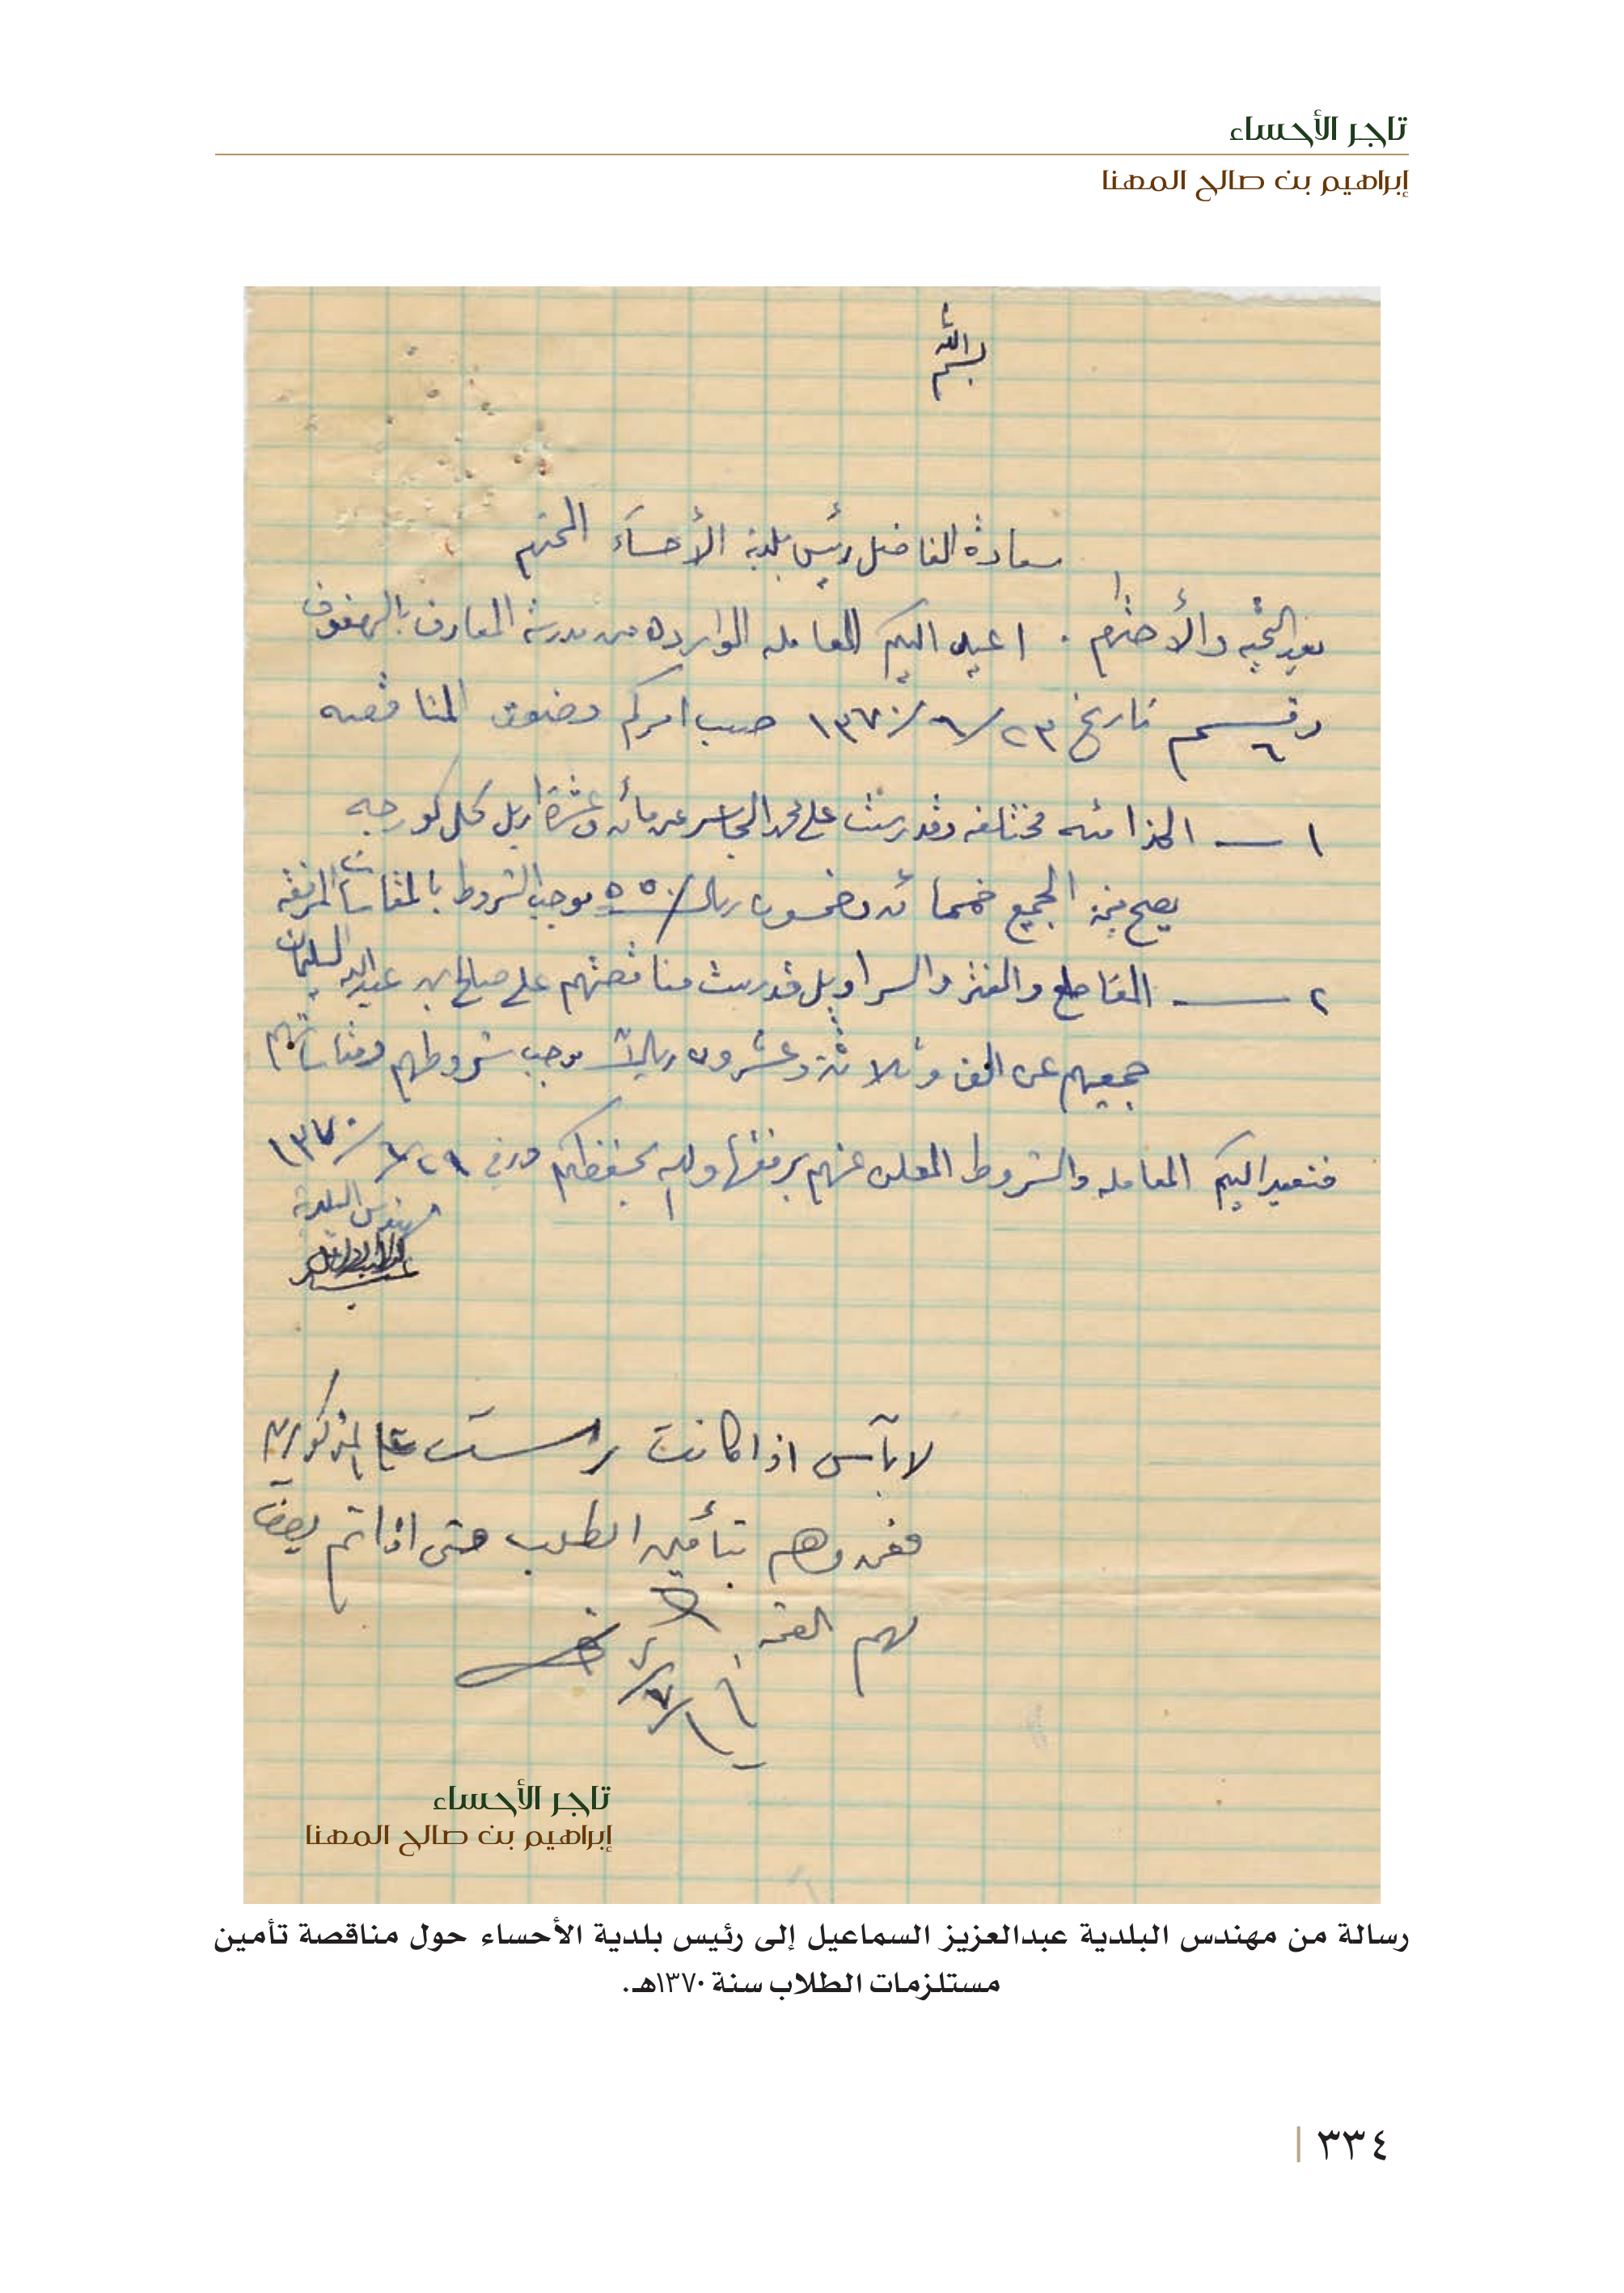 تاجر الأحساء
إبراهيم بن صالح المهنا
بسم الله
سعادة الفاضل رئيس بلدية الأحساء المحترم
بعد التحيه والأحترام . اعيد اليكم المعامله الوارده من مدرسة المعارف بالهفوف
رقم ٦ تاريخ ٢٣/٦/١٣٧٠ حسب امركم وضعت المناقصه
١ — مختلفه وقد رست على محمد الجاسر عن مائه وعشرة اريل كل كورجه
يصبح قيمة الجميع خمسمائه وخمسون ريال ٥٥٠ بموجب الشروط بالمقاسات المرفقه
٢ — المقاطع والغتر والسراويل قد رست مناقصتهم على صالح بن عبدالله السليمان
جميعهم عن الف وثلاثة وعشرون ريالاً بموجب شروطهم ومقاساتهم
فنعيد اليكم المعامله والشروط المعلن عنهم برفقها والله يحفظكم ٢٩/٦/١٣٧٠
مهندس البلدية
لا بأس اذا كانت رست على المذكورين
بتأمين الطلب حتى اذا تم
لهم القيمة
تاجر الأحساء
إبراهيم بن صالح المهنا
رسالة من مهندس البلدية عبدالعزيز السماعيل إلى رئيس بلدية الأحساء حول مناقصة تأمين
مستلزمات الطلاب سنة ١٣٧٠هـ.
٣٣٤